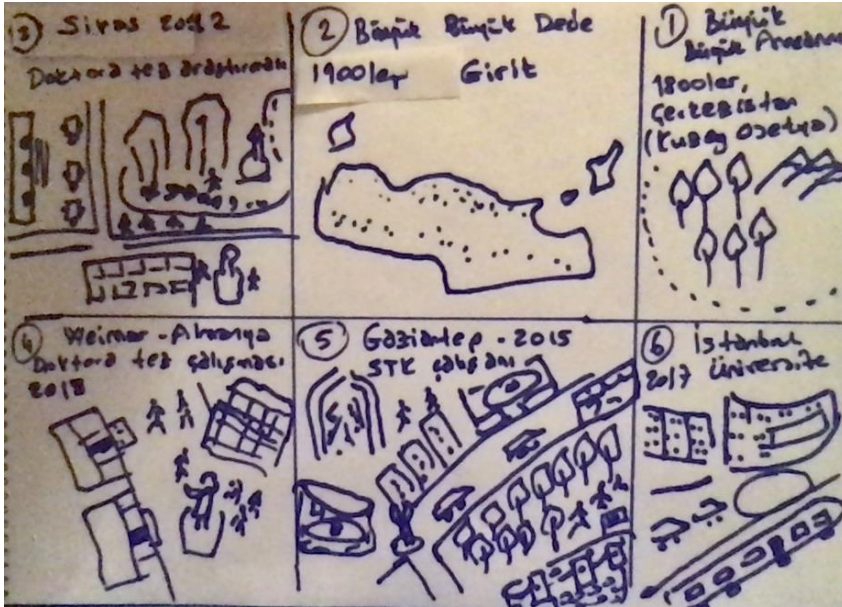 3 Sivas 2012
Doktora tez araştırmak
2 Büyük Büyük Dede
1900ler Girit
1 Büyük
Büyük Anneanne
1800ler,
Çerkezistan
(Kuzey Osetya)
4 Weimar - Almanya
Doktora tez çalışması
2018
5 Gaziantep - 2015
STK çalışanı
6 İstanbul
2017 Üniversite